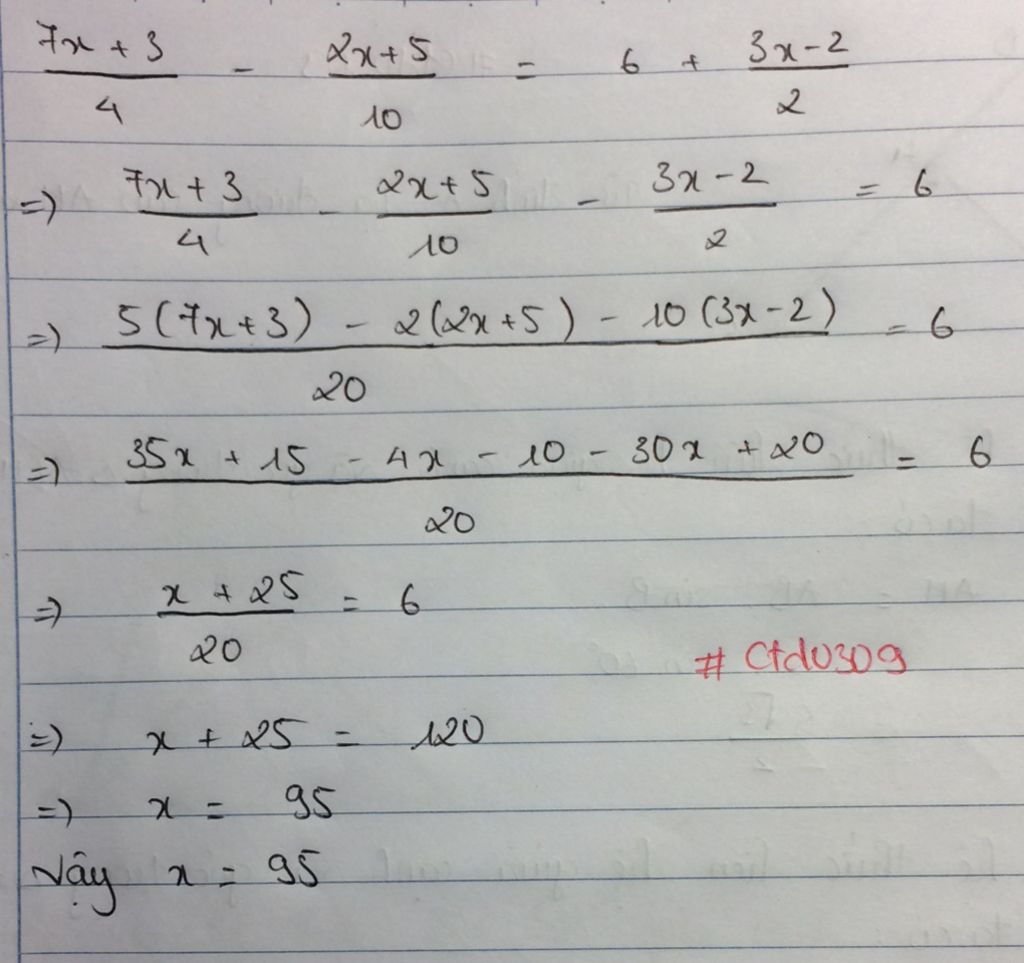 7x + 3 / 4 - 2x + 5 / 10 = 6 + 3x - 2 / 2
=> 7x + 3 / 4 - 2x + 5 / 10 - 3x - 2 / 2 = 6
=> 5 (7x + 3) - 2 (2x + 5) - 10 (3x - 2) / 20 = 6
=> 35x + 15 - 4x - 10 - 30x + 20 / 20 = 6
=> x + 25 / 20 = 6
# Ctd0309
=> x + 25 = 120
=> x = 95
Vậy x = 95